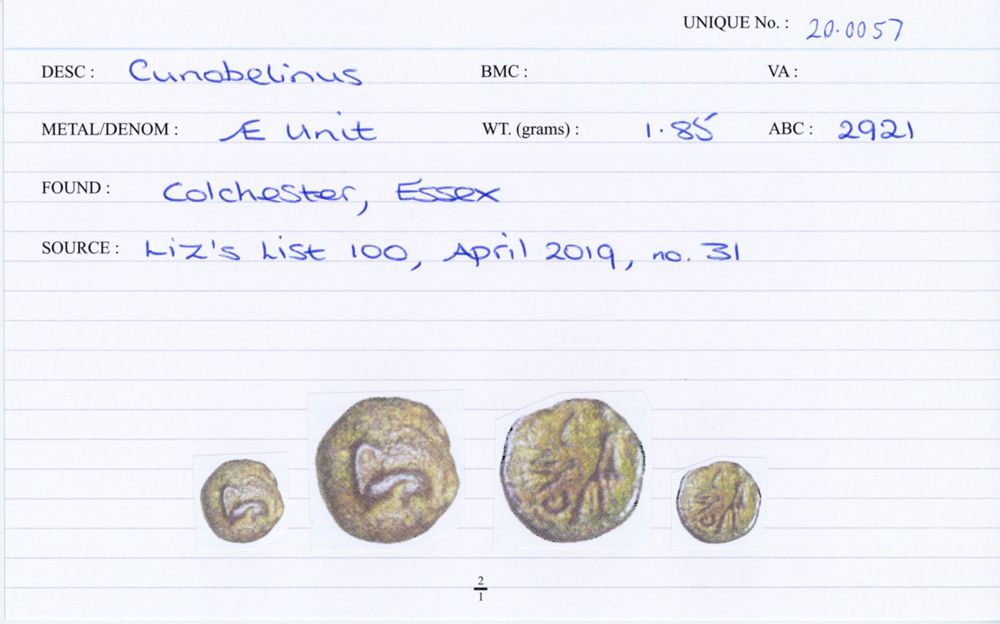 UNIQUE No. : 20.0057
DESC : Cunobelinus BMC : VA :
METAL/DENOM : Æ Unit WT. (grams) : 1.85 ABC : 2921
FOUND : Colchester, Essex
SOURCE : Liz's List 100, April 2019, no. 31
2
1